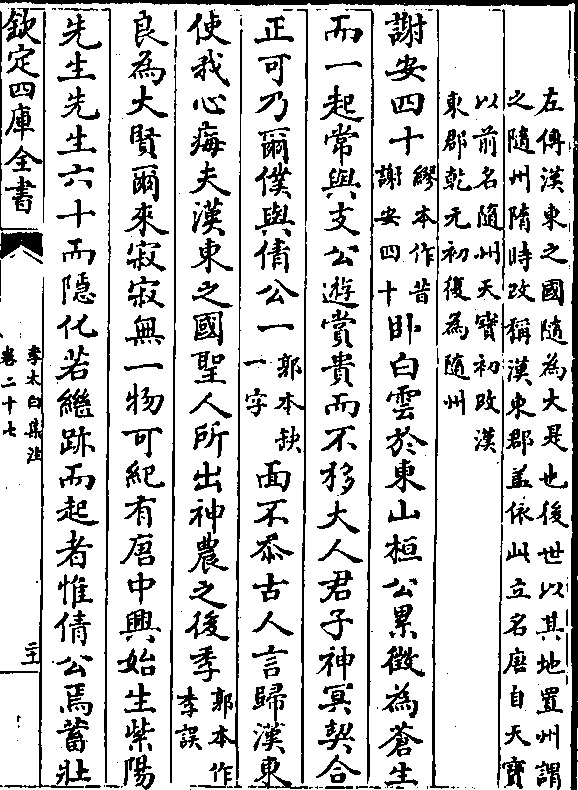 左傳漢東之國隨為大是也後世以其地置州謂
之隨州隋時改稱漢東郡蓋依此立名唐自天寳
以前名隨州天寳初改漢
東郡乾元初復為隨州
謝安四十繆本作昔謝安四十卧白雲於東山桓公累徵為蒼生
而一起常與支公遊賞貴而不移大人君子神冥契合
正可乃爾僕與倩公一郭本缺一字面不忝古人言歸漢東
使我心痗夫漢東之國聖人所出神農之後季郭本作李誤
良為大賢爾來寂寂無一物可紀有唐中興始生紫陽
先生先生六十而隱化若繼跡而起者惟倩公焉蓄壯
欽定四庫全書
李太白集注
卷二十七